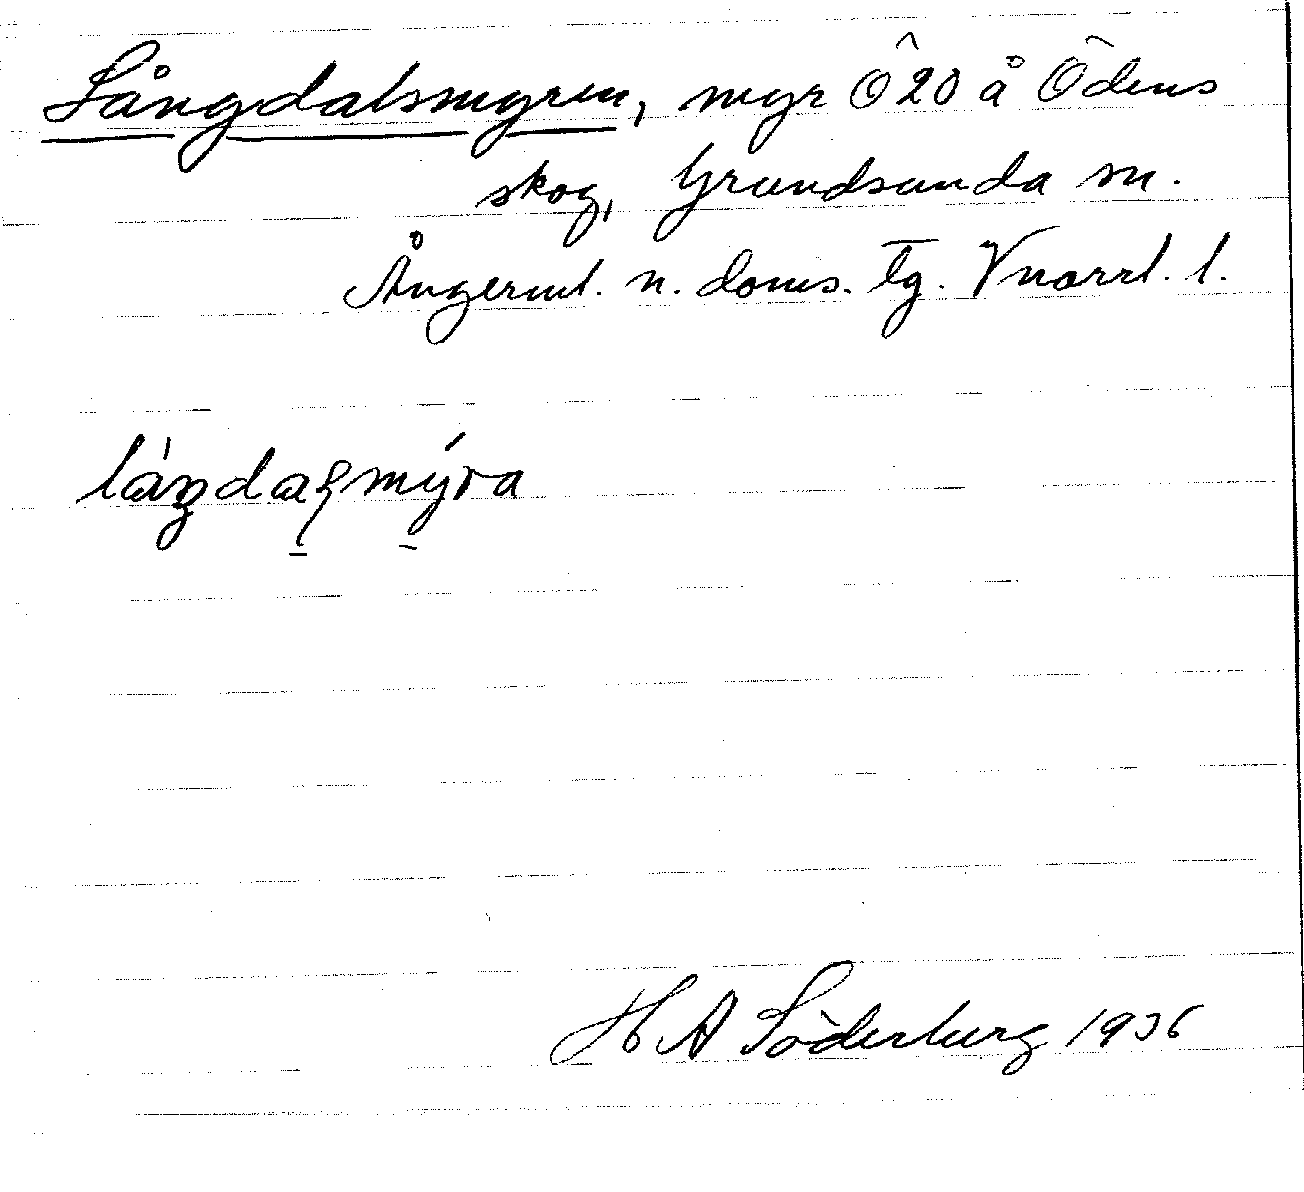 Långdalsmyren, myr Ö20 å Ödens
skog, Grundsunda sn.
Ångerml. n. doms. tg. Vnorrl. l.
láŋdaɫmýra
H A Söderberg 1936